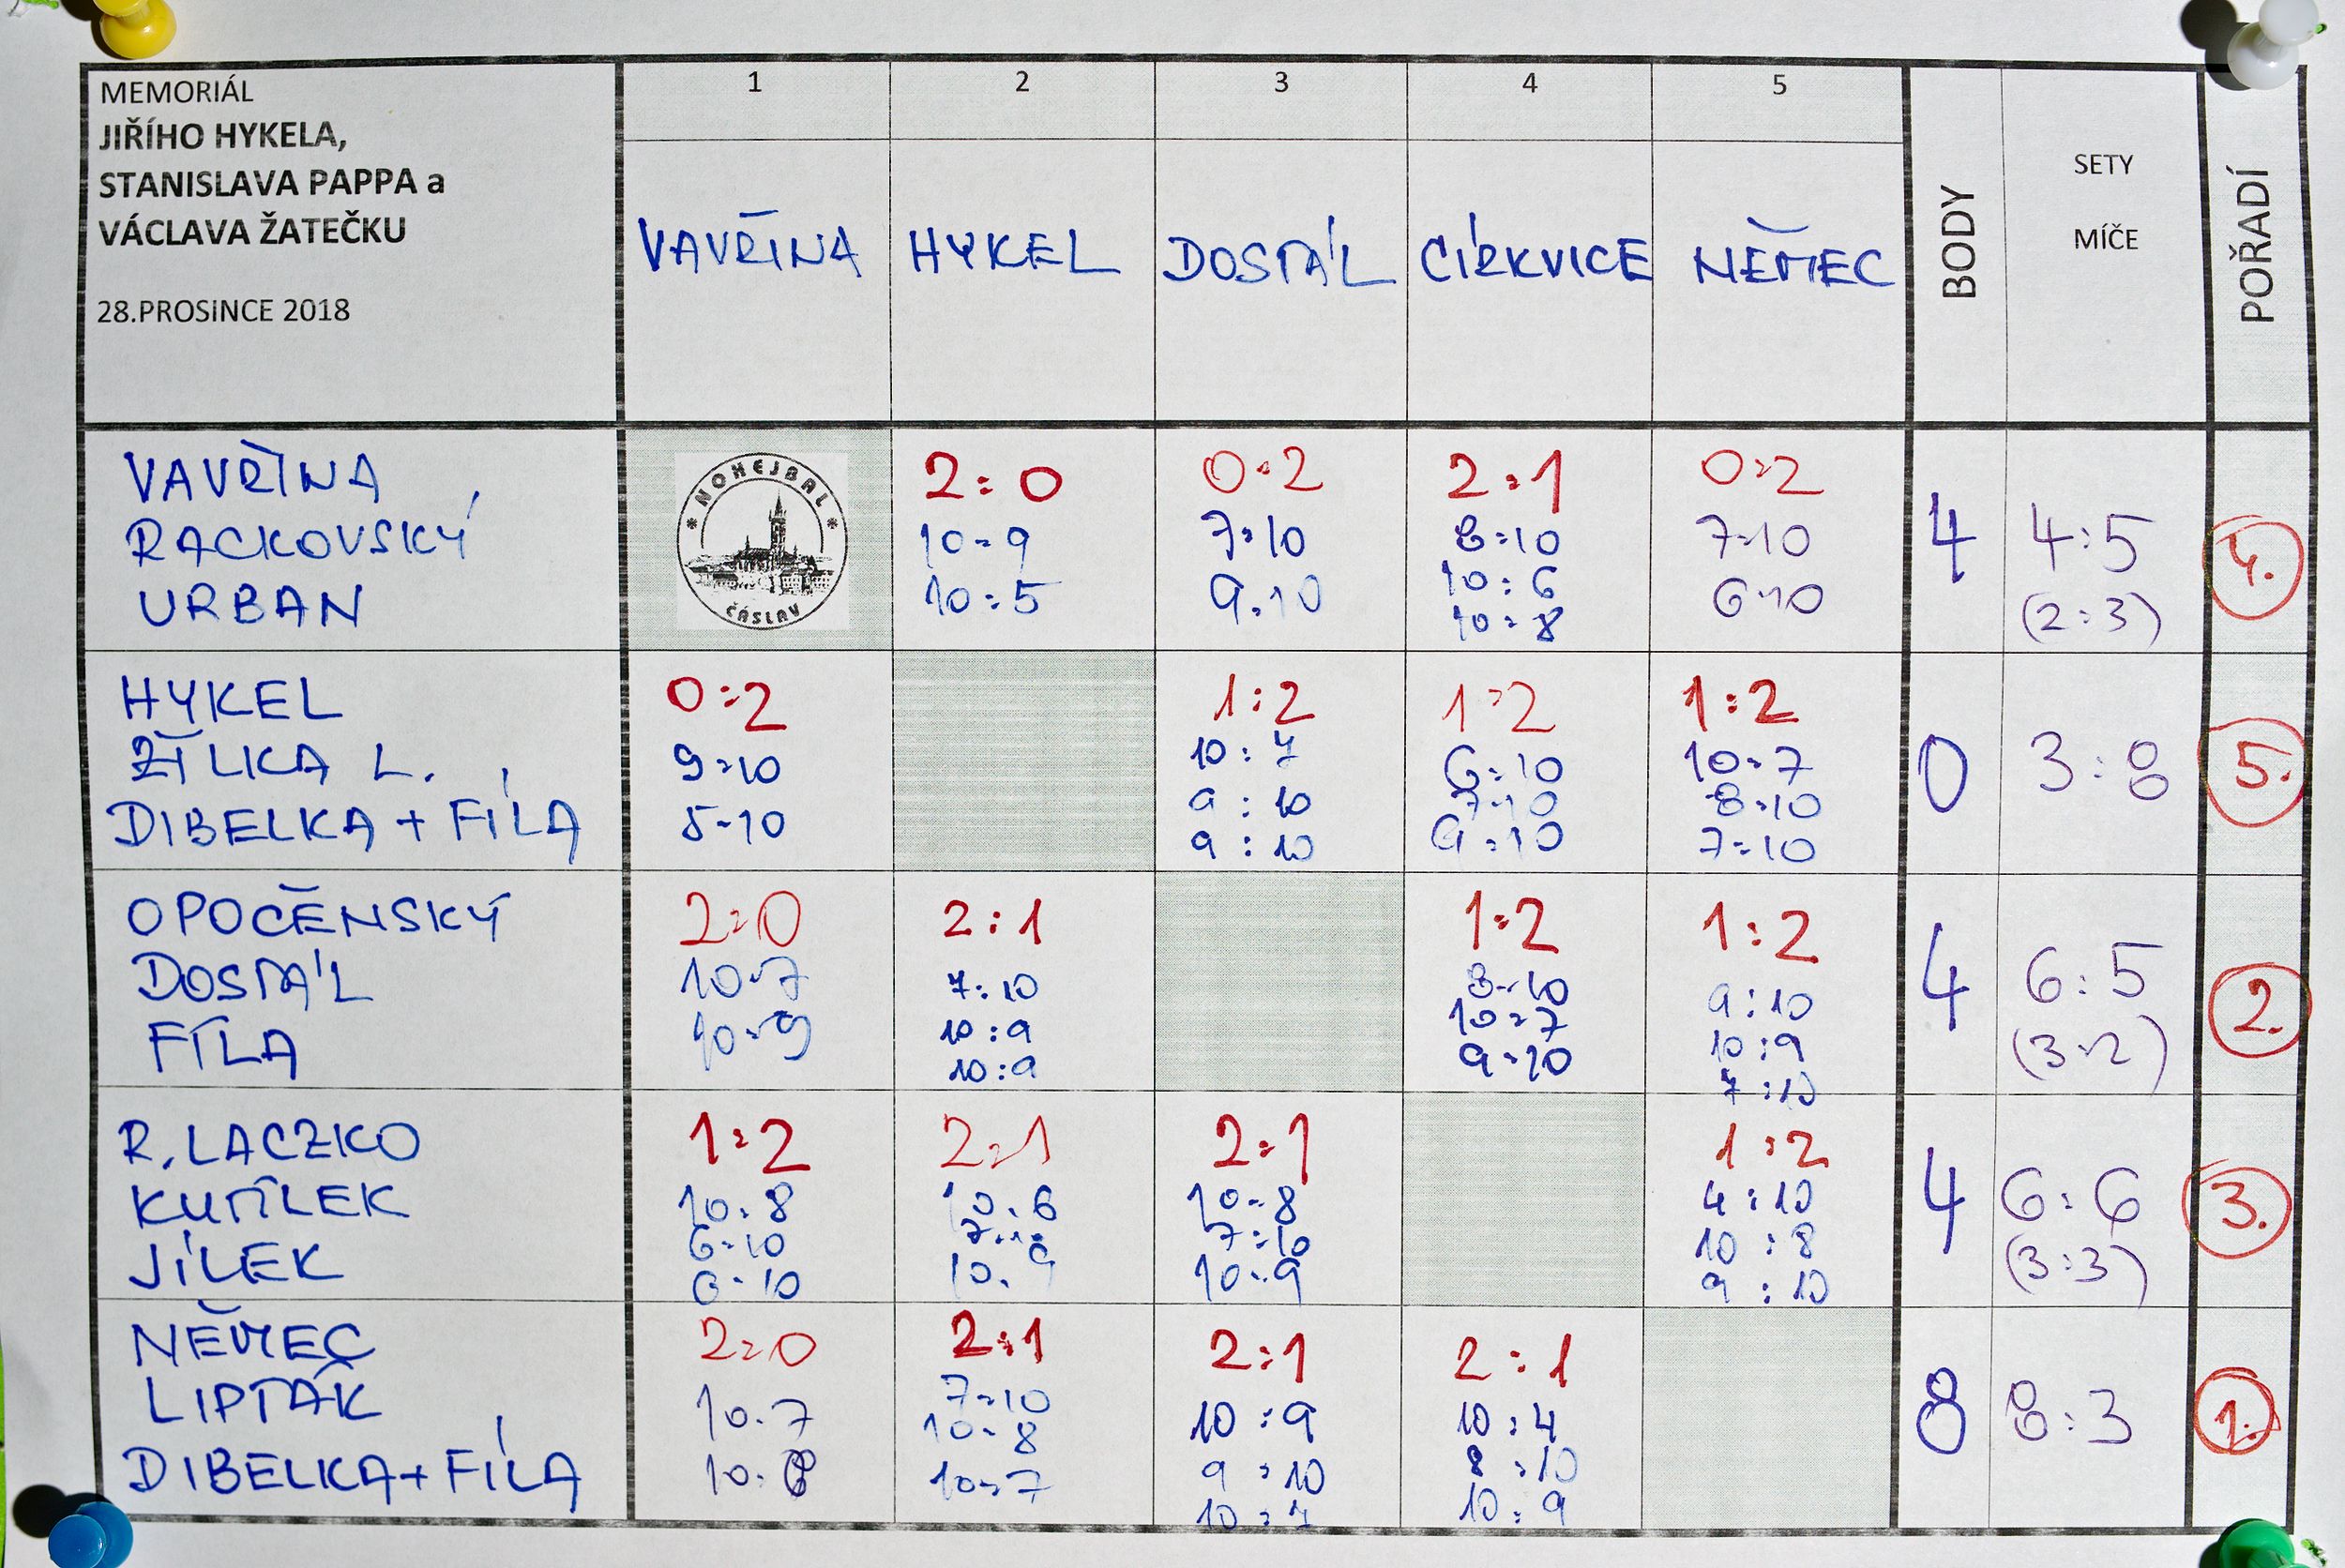 MEMORIÁL
JIŘÍHO HYKELA,
STANISLAVA PAPPA a
VÁCLAVA ŽATEČKU
28.PROSiNCE 2018
1 2 3 4 5
VAVŘINA HYKEL DOSTÁL CÍRKVICE NĚMEC
BODY
SETY
MÍČE
POŘADÍ
VAVŘINA
RACKOVSKÝ
URBAN
NOHEJBAL
ČÁSLAV
2:0 0:2 2:1 0:2
10:9 7:10 8:10 7:10
10:5 9:10 10:6 6:10
10:8
4 4:5
(2:3)
4.
HYKEL
ŽÍLKA L.
DIBELKA + FÍLA
0:2 1:2 1:2 1:2
9:10 10:7 6:10 10:7
5:10 9:10 7:10 8:10
9:10 9:10 7:10
0 3:8 5.
OPOČENSKÝ
DOSTÁL
FÍLA
2:0 2:1 1:2 1:2
10:7 7:10 8:10 9:10
10:9 10:9 10:7 10:9
10:9 9:10 7:10
4 6:5
(3:2)
2.
R. LACZKO
KUMÍLEK
JÍLEK
1:2 2:1 2:1 1:2
10:8 10:6 10:8 4:10
6:10 7:10 7:10 10:8
8:10 10:9 10:9 9:10
4 6:6
(3:3)
3.
NĚMEC
LIPTÁK
DIBELKA + FÍLA
2:0 2:1 2:1 2:1
10:7 7:10 10:9 10:4
10:6 10:8 9:10 8:10
10:7 10:7 10:9
8 8:3 1.